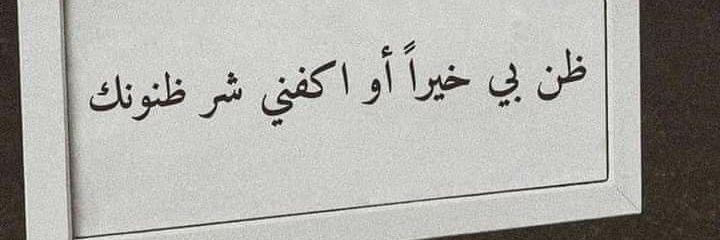 ظن بي خيراً أو اكفني شر ظنونك